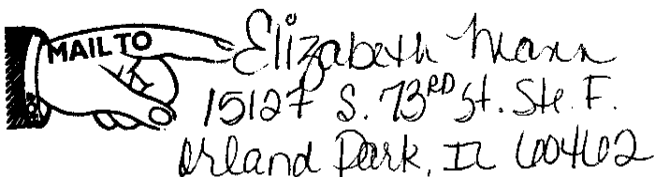 MAIL TO
Elizabeth Mann
15127 S. 73RD St. Ste. F.
Orland Park, IL 60462